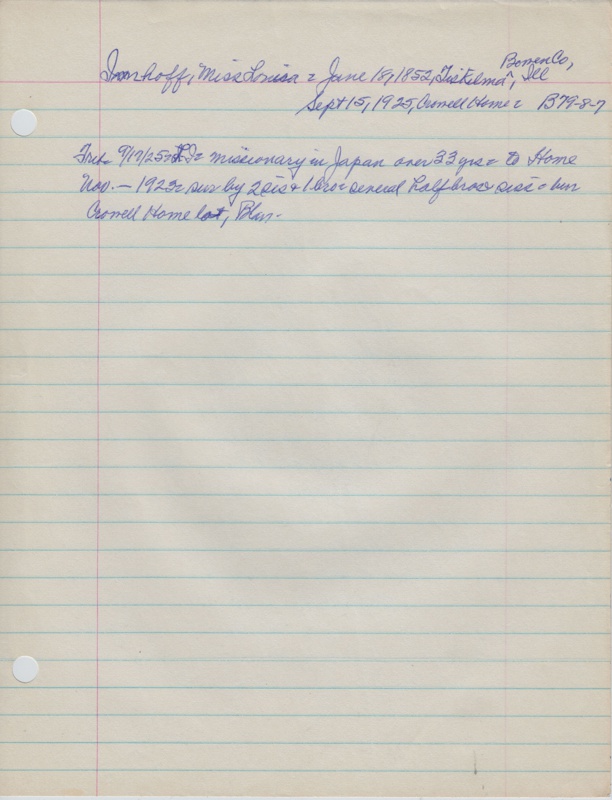 Bomen Co,
Imhoff, Miss Louisa = June 18, 1852, "Tiskilma", Ill
Sept 15, 1925, Crowell Home = B79-8-7
Trib 9/17/25 = missionary in Japan over 33 yrs = to Home
Nov. - 1923 = sur by 2 sis + 1 bro = several half bros sis's = bur
Crowell Home lot, Blair.